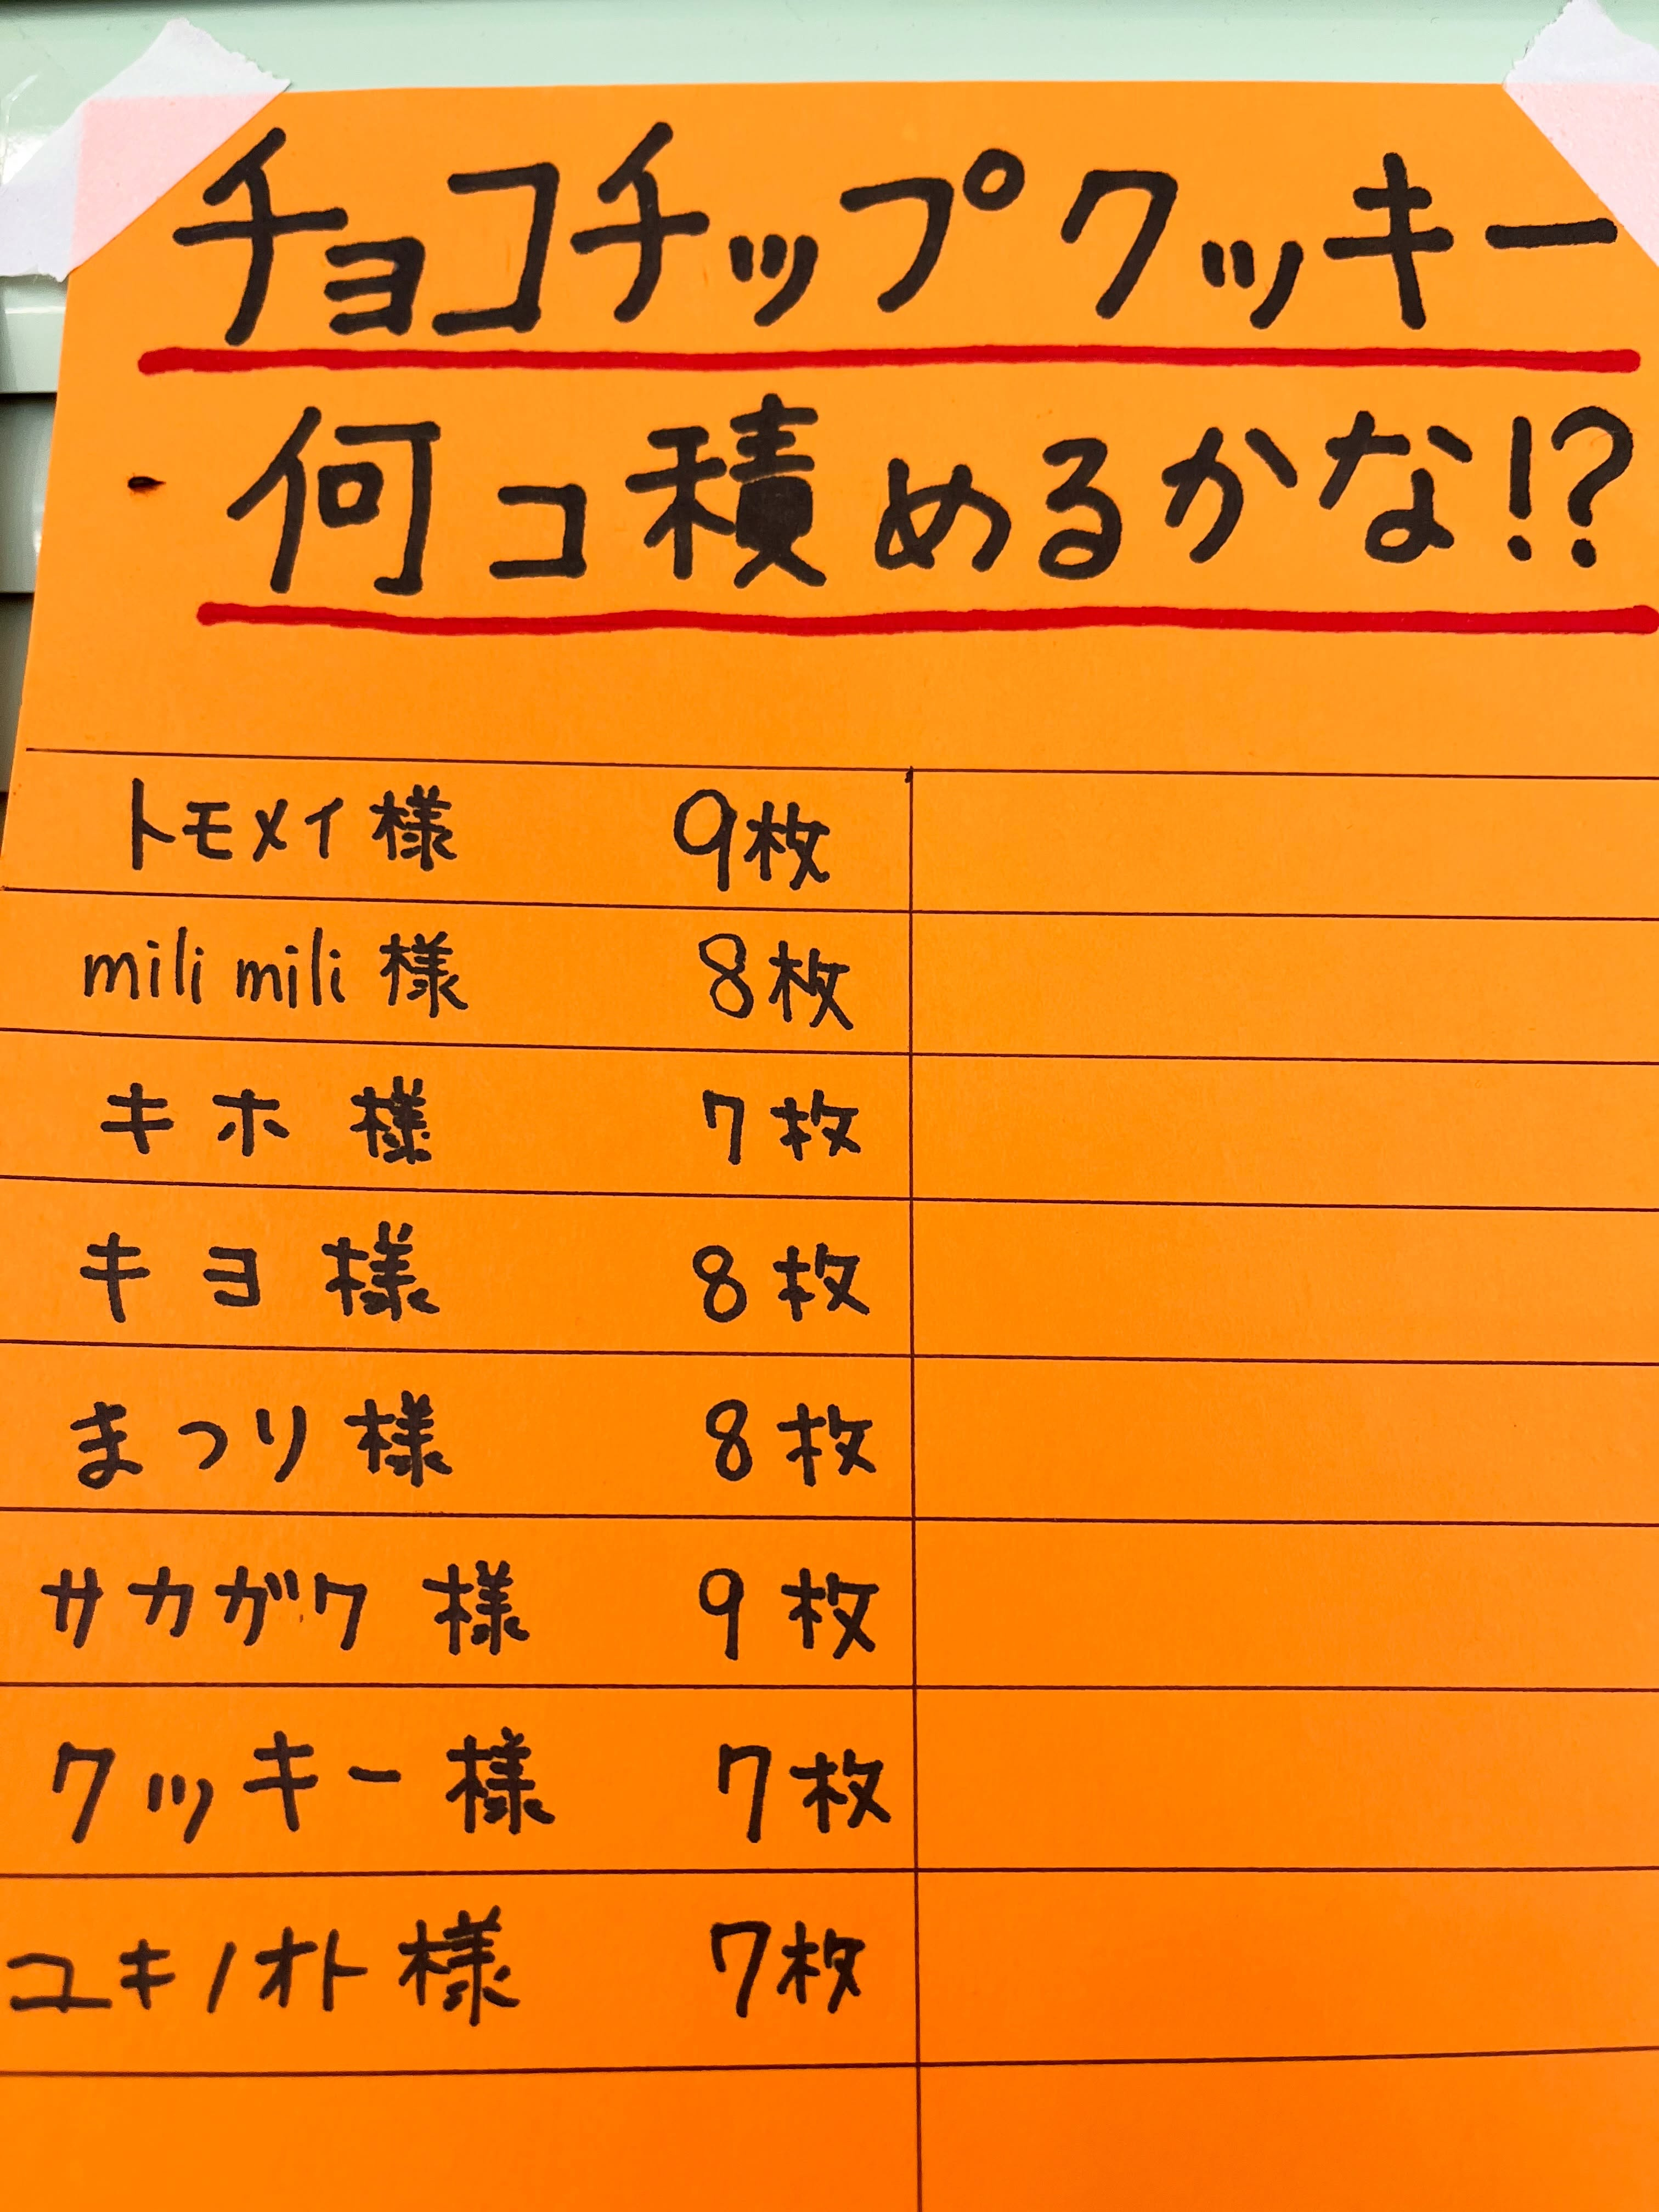 チョコチップクッキー
何コ積めるかな!?
トモメイ様 9枚
mili mili 様 8枚
キホ様 7枚
キヨ様 8枚
まつり様 8枚
サカガク様 9枚
クッキー様 7枚
ユキノオト様 7枚